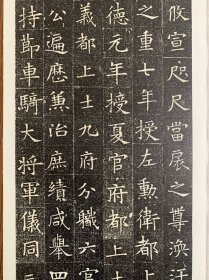 攸宣咫尺當扆之尊渙汗
之重七年授左勳衛都上
德元年授夏官府都上士
義都上士九府分職六官
公遍歷兼治庶績咸舉四
持節車騎大將軍儀同